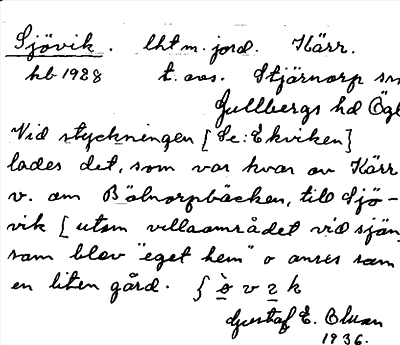 Sjövik. lht m. jord. Kärr.
hb 1928 t. avs. Stjärnorp sn
Gullbergs hd Ögl
Vid styckningen [Se: Ekviken]
lades det, som var kvar av Kärr
v. om Bölnorpbäcken, till Sjö-
vik [utom villaområdet vid sjön,
som blev "eget hem" o anses som
en liten gård. ʃ ò v 2 k
Gustaf E.
1936.